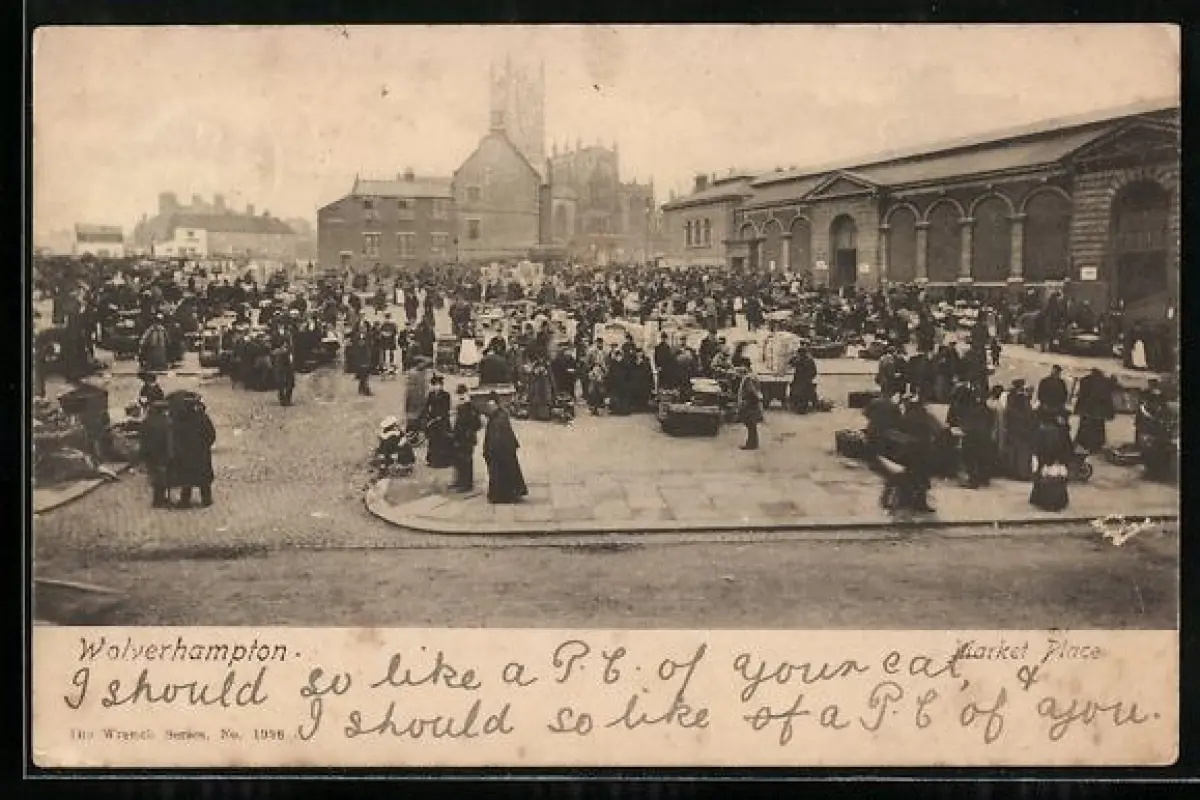 Wolverhampton.
Market Place
I should so like a P.C. of your cat, &
I should so like of a P.C of you.
The Wrench Series, No.